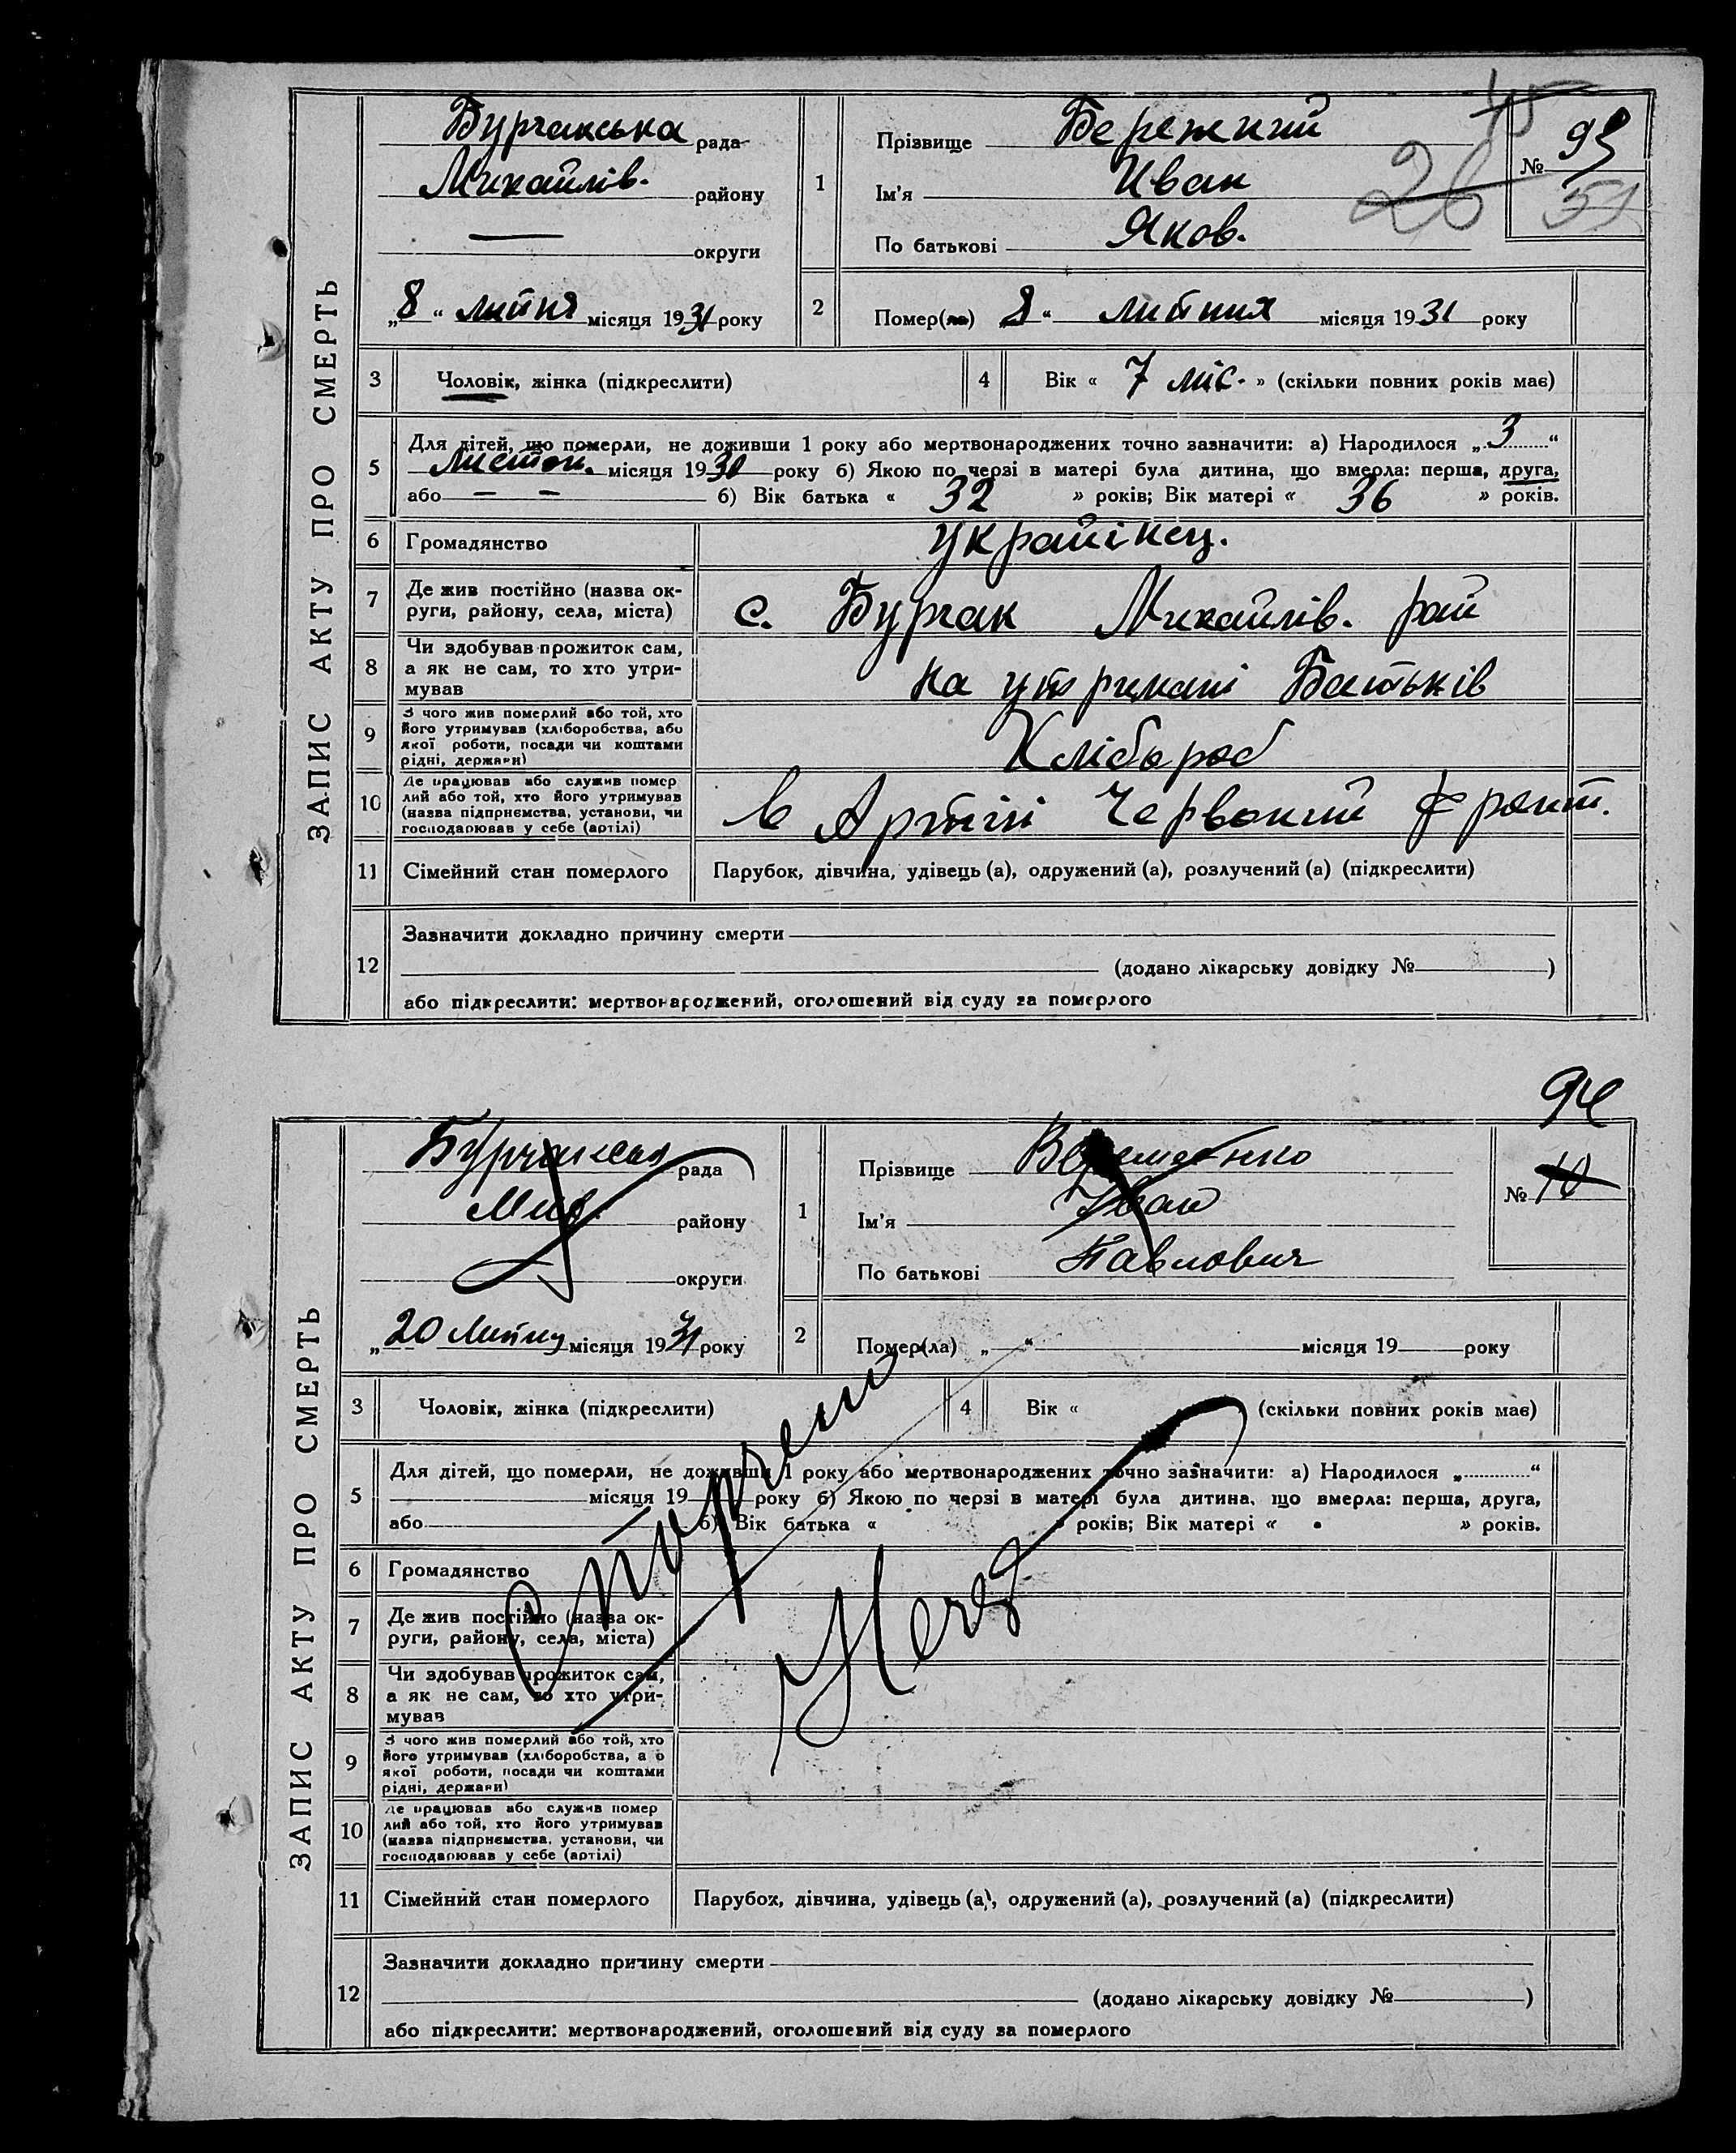 ЗАПИС АКТУ ПРО СМЕРТЬ
Бурчакська рада
Михайлів. району
— округи
„8“ липня місяця 1931 року
1
Прізвище Бережний
Ім'я Иван
По батькові Яков.
45
26
№ 93
51
2
Помер(ла) „8“ липния місяця 1931 року
3 Чоловік, жінка (підкреслити)
4 Вік « 7 міс. » (скільки повних років має)
5 Для дітей, що померли, не доживши 1 року або мертвонароджених точно зазначити: а) Народилося „3“
Листоп. місяця 1930 року б) Якою по черзі в матері була дитина, що вмерла: перша, друга,
або — — б) Вік батька « 32 » років; Вік матері « 36 » років.
6 Громадянство українец.
7 Де жив постійно (назва ок-
руги, району, села, міста)
с. Бурчак Михайлів. рай
8 Чи здобував прожиток сам,
а як не сам, то хто утри-
мував
на утримані Батьків
9 З чого жив померлий або той, хто
його утримував (хліборобства, або
якої роботи, посади чи коштами
рідні, держави)
Хлібороб
10 Де працював або служив помер
лий або той, хто його утримував
(назва підприємства, установи, чи
господарював у себе (артілі)
в Артілі Червоний фронт.
11 Сімейний стан померлого Парубок, дівчина, удівець (а), одружений (а), розлучений (а) (підкреслити)
12 Зазначити докладно причину смерти
(додано лікарську довідку № )
або підкреслити: мертвонароджений, оголошений від суду за померлого
94
ЗАПИС АКТУ ПРО СМЕРТЬ
Бурчакська рада
Мих. району
округи
„20 Липну місяця 1931 року
1
Прізвище Веременко
Ім'я Иван
По батькові Павлович
№ 10
2
Помер(ла) „ “ місяця 19 року
3 Чоловік, жінка (підкреслити)
4 Вік « (скільки повних років має)
5 Для дітей, що померли, не доживши 1 року або мертвонароджених точно зазначити: а) Народилося „ “
місяця 19 року б) Якою по черзі в матері була дитина, що вмерла: перша, друга,
або б) Вік батька « » років; Вік матері « » років.
6 Громадянство
7 Де жив постійно (назва ок-
руги, району, села, міста)
8 Чи здобував прожиток сам,
а як не сам, то хто утри-
мував
9 З чого жив померлий або той, хто
його утримував (хліборобства, а о
якої роботи, посади чи коштами
рідні, держави)
10 Де працював або служив помер
лий або той, хто його утримував
(назва підприємства, установи, чи
господарював у себе (артілі)
11 Сімейний стан померлого Парубок, дівчина, удівець (а), одружений (а), розлучений (а) (підкреслити)
12 Зазначити докладно причину смерти
(додано лікарську довідку № )
або підкреслити: мертвонароджений, оголошений від суду за померлого